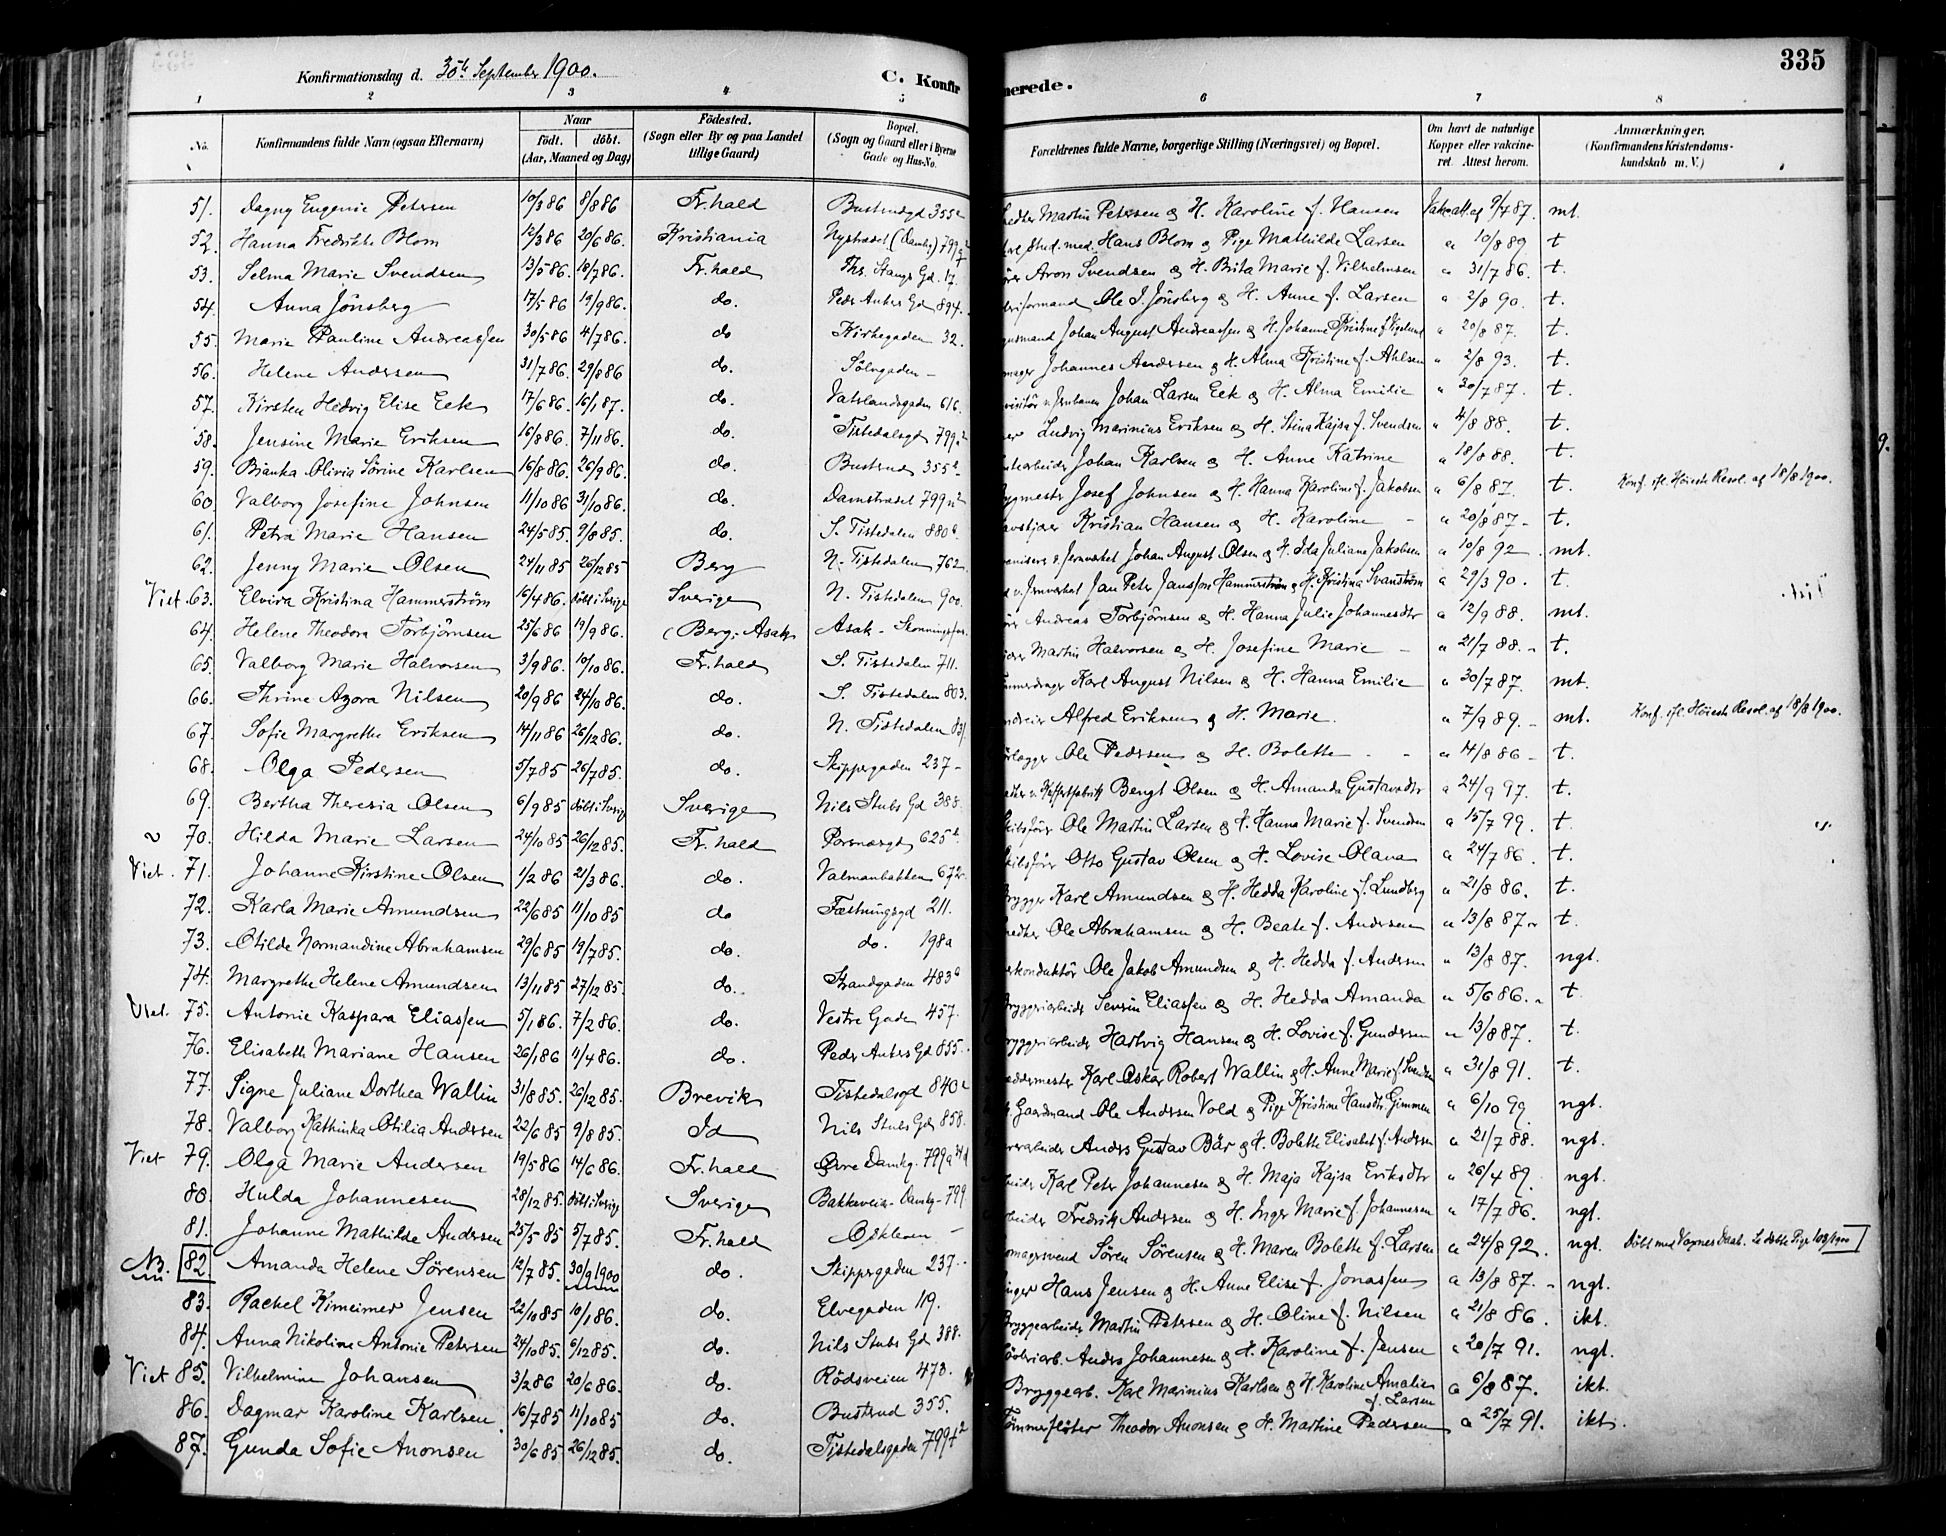 335
Konfirmationsdag d. 30th September 1900.
C. Konfirmerede.
1 2 3 4 5 6 7 8
No.
Konfirmandens fulde Navn (ogsaa Efternavn)
Naar
födt. döbt.
(Aar, Maaned og Dag)
Födested.
(Sogn eller By og paa Landet tillige Gaard)
Bopæl.
(Sogn og Gaard eller i Byerne Gade og Hus-No.
Forældrenes fulde Navne, borgerlige Stilling (Næringsvei) og Bopæl.
Om havt de naturlige Kopper eller vakcineret. Attest herom.
Anmærkninger.
(Konfirmandens Kristendomskundskab m. V.)
51. Dagny Eugenie Petersen 10/3 86 8/8 86 Fr.hald Bustrudgd 355 Martin Petersen & H. Karoline f. Hansen 9/4 87. mt.
52. Hanna Fredrikke Blom 12/3 86 20/6 86. Kristiania Nystrædet (Damkg) 799 Stud. med. Hans Blom & Pige Mathilde Larsen " 10/8 89 t
53. Selma Marie Svendsen 13/5 86. 18/7 86. Fr.hald Ths. Stangs Gd. 17. Aron Svendsen & H. Brita Marie f. Vilhelmsen " 31/7 86. t.
54. Anna Jönsberg 17/5 86 19/9 86. do. Peder Ankers Gd 894. Ole J. Jönsberg & H. Anne f. Larsen " 2/8 90. t.
55. Marie Pauline Andreassen 30/5 86 4/7 86. do Kirkegaden 32. Johan August Andreassen & H. Johanne Kristine f. " 20/8 87. t.
56. Helene Andersen 31/7 86. 29/8 86 do. Sölvgaden - Johannes Andersen & H. Alma Kristine f. Ahlsen " 2/8 93. t.
57. Kirsten Hedvig Elise Eek 17/6 86. 16/1 87. do. Vatslandsgaden 616. Johan Larsen Eek & H. Alma Emilie " 30/7 87. t.
58. Jensine Marie Eriksen 16/8 86. 7/11 86. do. Tistedalsgd 799. Ludvig Marinius Eriksen & H. Stina Kajsa f. Svendsen " 4/8 88. t.
59. Bianka Olivia Sörine Karlsen 16/8 86. 26/9 86. do. Bustrud 355 Johan Karlsen & H. Anne Katrine " 18/8 88. t.
60. Valborg Josefine Johnsen 11/10 86 31/10 86. do. Damstrædet 799 Josef Johnsen & H. Hanna Karoline f. Jakobsen " 6/8 87. t. Konf. ifl. Höieste Resol. af 18/8 1900.
61. Petra Marie Hansen 24/5 85. 9/8 85. do. S. Tistedalen 880 Kristian Hansen & H. Karoline - " 20/8 87 - t.
62. Jenny Marie Olsen 24/11 85 26/12 85 Berg N. Tistedalen 762. Johan August Olsen & H. Ida Juliane Jakobsen " 10/8 92. mt.
Viet. 63. Elvira Kristina Hammerström 16/4 86. döbt i Sverige Sverige N. Tistedalen 900. v. Jernverket Jan Peter Jansson Hammerström & H. Kristina Svanström " 29/3 90. t.
64. Helene Theodora Torbjörnsen 25/6 86 19/9 86. (Berg, Asak) Asak - Andreas Torbjörnsen & H. Hanna Julie Johannesdtr " 12/9 88. mt.
65. Valborg Marie Halvorsen 3/9 86. 10/10 86. Fr.hald S. Tistedalen 711. Martin Halvorsen & H. Josefine Marie - " 21/7 88. - t.
66. Thrine Azora Nilsen 20/9 86 24/10 86. do. S. Tistedalen 803. Karl August Nilsen & H. Hanna Emilie " 30/7 87. mt.
67. Sofie Margrethe Eriksen 14/11 86 26/12 86. do. N. Tistedalen Alfred Eriksen & H. Marie. " 7/9 89. - mt. Konf. ifl. Höieste Resol. af 18/8 1900.
68. Olga Pedersen 5/7 85 26/7 85. do. Skippergaden 237 - Ole Pedersen & H. Bolette - - " 14/8 86 - t.
69. Bertha Theresia Olsen 6/9 85 döbt i Sverig Sverige Nils Stubs Gd 388. Bengt Olsen & H. Amanda Gustavsdtr " 24/9 97. t.
70. Hilda Marie Larsen 24/10 85 26/12 85. Fr.hald Porsnæsgd 625 Ole Martin Larsen & H. Hanna Marie f. Svendsen " 15/7 99. t.
Viet. 71. Johanne Kirstine Olsen 1/2 86 21/3 86. do. Valmanbakken 672 Otto Gustav Olsen & H. Lovise Olava " 24/7 86. t.
72. Karla Marie Amundsen 22/6 85 11/10 85 do Fæstningsgd 211. Brygger Karl Amundsen & H. Hedda Karoline f. Lundberg " 21/8 86. t.
73. Otilde Normandine Abrahamsen 29/6 85 19/7 85. do. do. 198a Ole Abrahamsen & H. Beate f. Andersen " 13/8 87 t.
74. Margrethe Helene Amundsen 13/11 85 27/12 85. do. Strandgaden 483 Ole Jakob Amundsen & H. Hedda f. Andersen " 13/8 87. ngt.
Viet. 75. Antonie Kaspara Eliassen 5/1 86. 7/2 86. do. Vestre Gade 457. Bryggeriarbeider Severin Eliassen & H. Hedda Amanda " 5/6 86. t.
76. Elisabeth Mariane Hansen 26/1 86 11/4 86. do. Peder Ankers Gd 855. Bryggeriarbeider Hartvig Hansen & H. Lovise f. Gundersen " 13/8 87. t.
77. Signe Juliane Dorthea Wallin 31/8 85. 26/12 85. Brevik Tistedalsgd 840 Karl Oskar Robert Wallin & H. Anne Marie f. Svendsen " 31/8 91. t.
78. Valborg Kathinka Otilia Andersen 22/6 85 9/8 85. Id Nils Stubs Gd. 858. Gaardmand Ole Andersen Vold & Pige Kristine Hansdtr. Gimmen " 6/10 99. ngt.
Viet 79. Olga Marie Andersen 19/5 86 14/6 86. Fr.hald Övre Damkg. 799 Anders Gustav Bär & H. Bolette Elisabet f. Andersen " 21/7 88. ngt.
80. Hulda Johannesen 28/12 85. döbt i Sverig Sverige Bakkeveien - Damkg - 799 Karl Peter Johannesen & H. Maja Kajsa Eriksdtr " 26/4 89. ngt.
81. Johanne Mathilde Andersen 25/5 85 5/7 85. Fr.hald - Fredrik Andersen & H. Inger Marie f. Johannesen " 17/7 86. ngt.
NB. 82 Amanda Helene Sörensen 12/7 85. 30/9 1900 do. Skippergaden 237. Sören Sörensen & H. Maren Bolette f. Larsen " 24/8 92. ngt. Döbt med Voxnes Daab. Se döbte Pige 108/1900
83. Rachel Kimeimer Jensen 22/10 85 10/1 86. do. Elvegaden 119. Hans Jensen & H. Anne Elise f. Jonassen " 13/8 87. - ngt.
84. Anna Nikoline Antonie Petersen 24/10 85. 6/12 85. do. Nils Stubs Gd 388. Bryggearbeider Martin Petersen & H. Oline f. Nilsen " 21/8 86. ikt.
Viet 85. Vilhelmine Johansen 3/2 86 20/6 86. do. Rödsveien 473. Anders Johannesen & H. Karoline f. Jensen " 20/7 91. ngt.
86. Dagmar Karoline Karlsen 16/7 85 11/10 85 do. Bustrud 355. Bryggearb. Karl Marinius Karlsen & H. Karoline Amalie f. Larsen " 6/8 87. ikt.
87. Gunda Sofie Anonsen 30/6 85 26/12 85. do. Tistedalsgaden 799 Tömmerflöter Theodor Anonsen & H. Martine Pedersen " 25/7 91. ikt.
9.